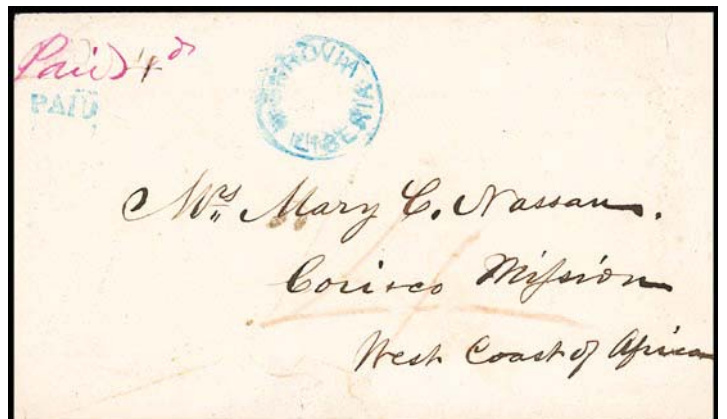 Paid 4d
PAID
MONROVIA
LIBERIA
Mrs Mary C. Nassau.
Corisco Mission
West Coast of Africa
4